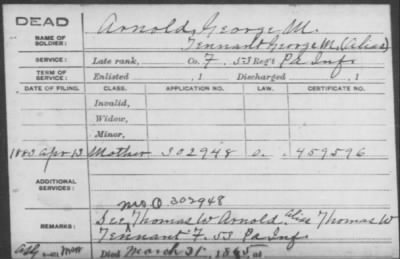 DEAD
NAME OF SOLDIER:
Arnold, George M.
Tennant George M. (Alias)
SERVICE: Late rank, Co. F. 53 Reg't Pa Inf.
TERM OF SERVICE: Enlisted , 1 Discharged , 1
DATE OF FILING. CLASS. APPLICATION NO. LAW. CERTIFICATE NO.
Invalid,
Widow,
Minor,
1883 Apr 13 Mother 302948 459596
ADDITIONAL SERVICES:
Mo. O 302948
REMARKS: See Thomas W Arnold. Alias Thomas W
Tennant F. 53 Pa Inf.
Died March 31 1865 at